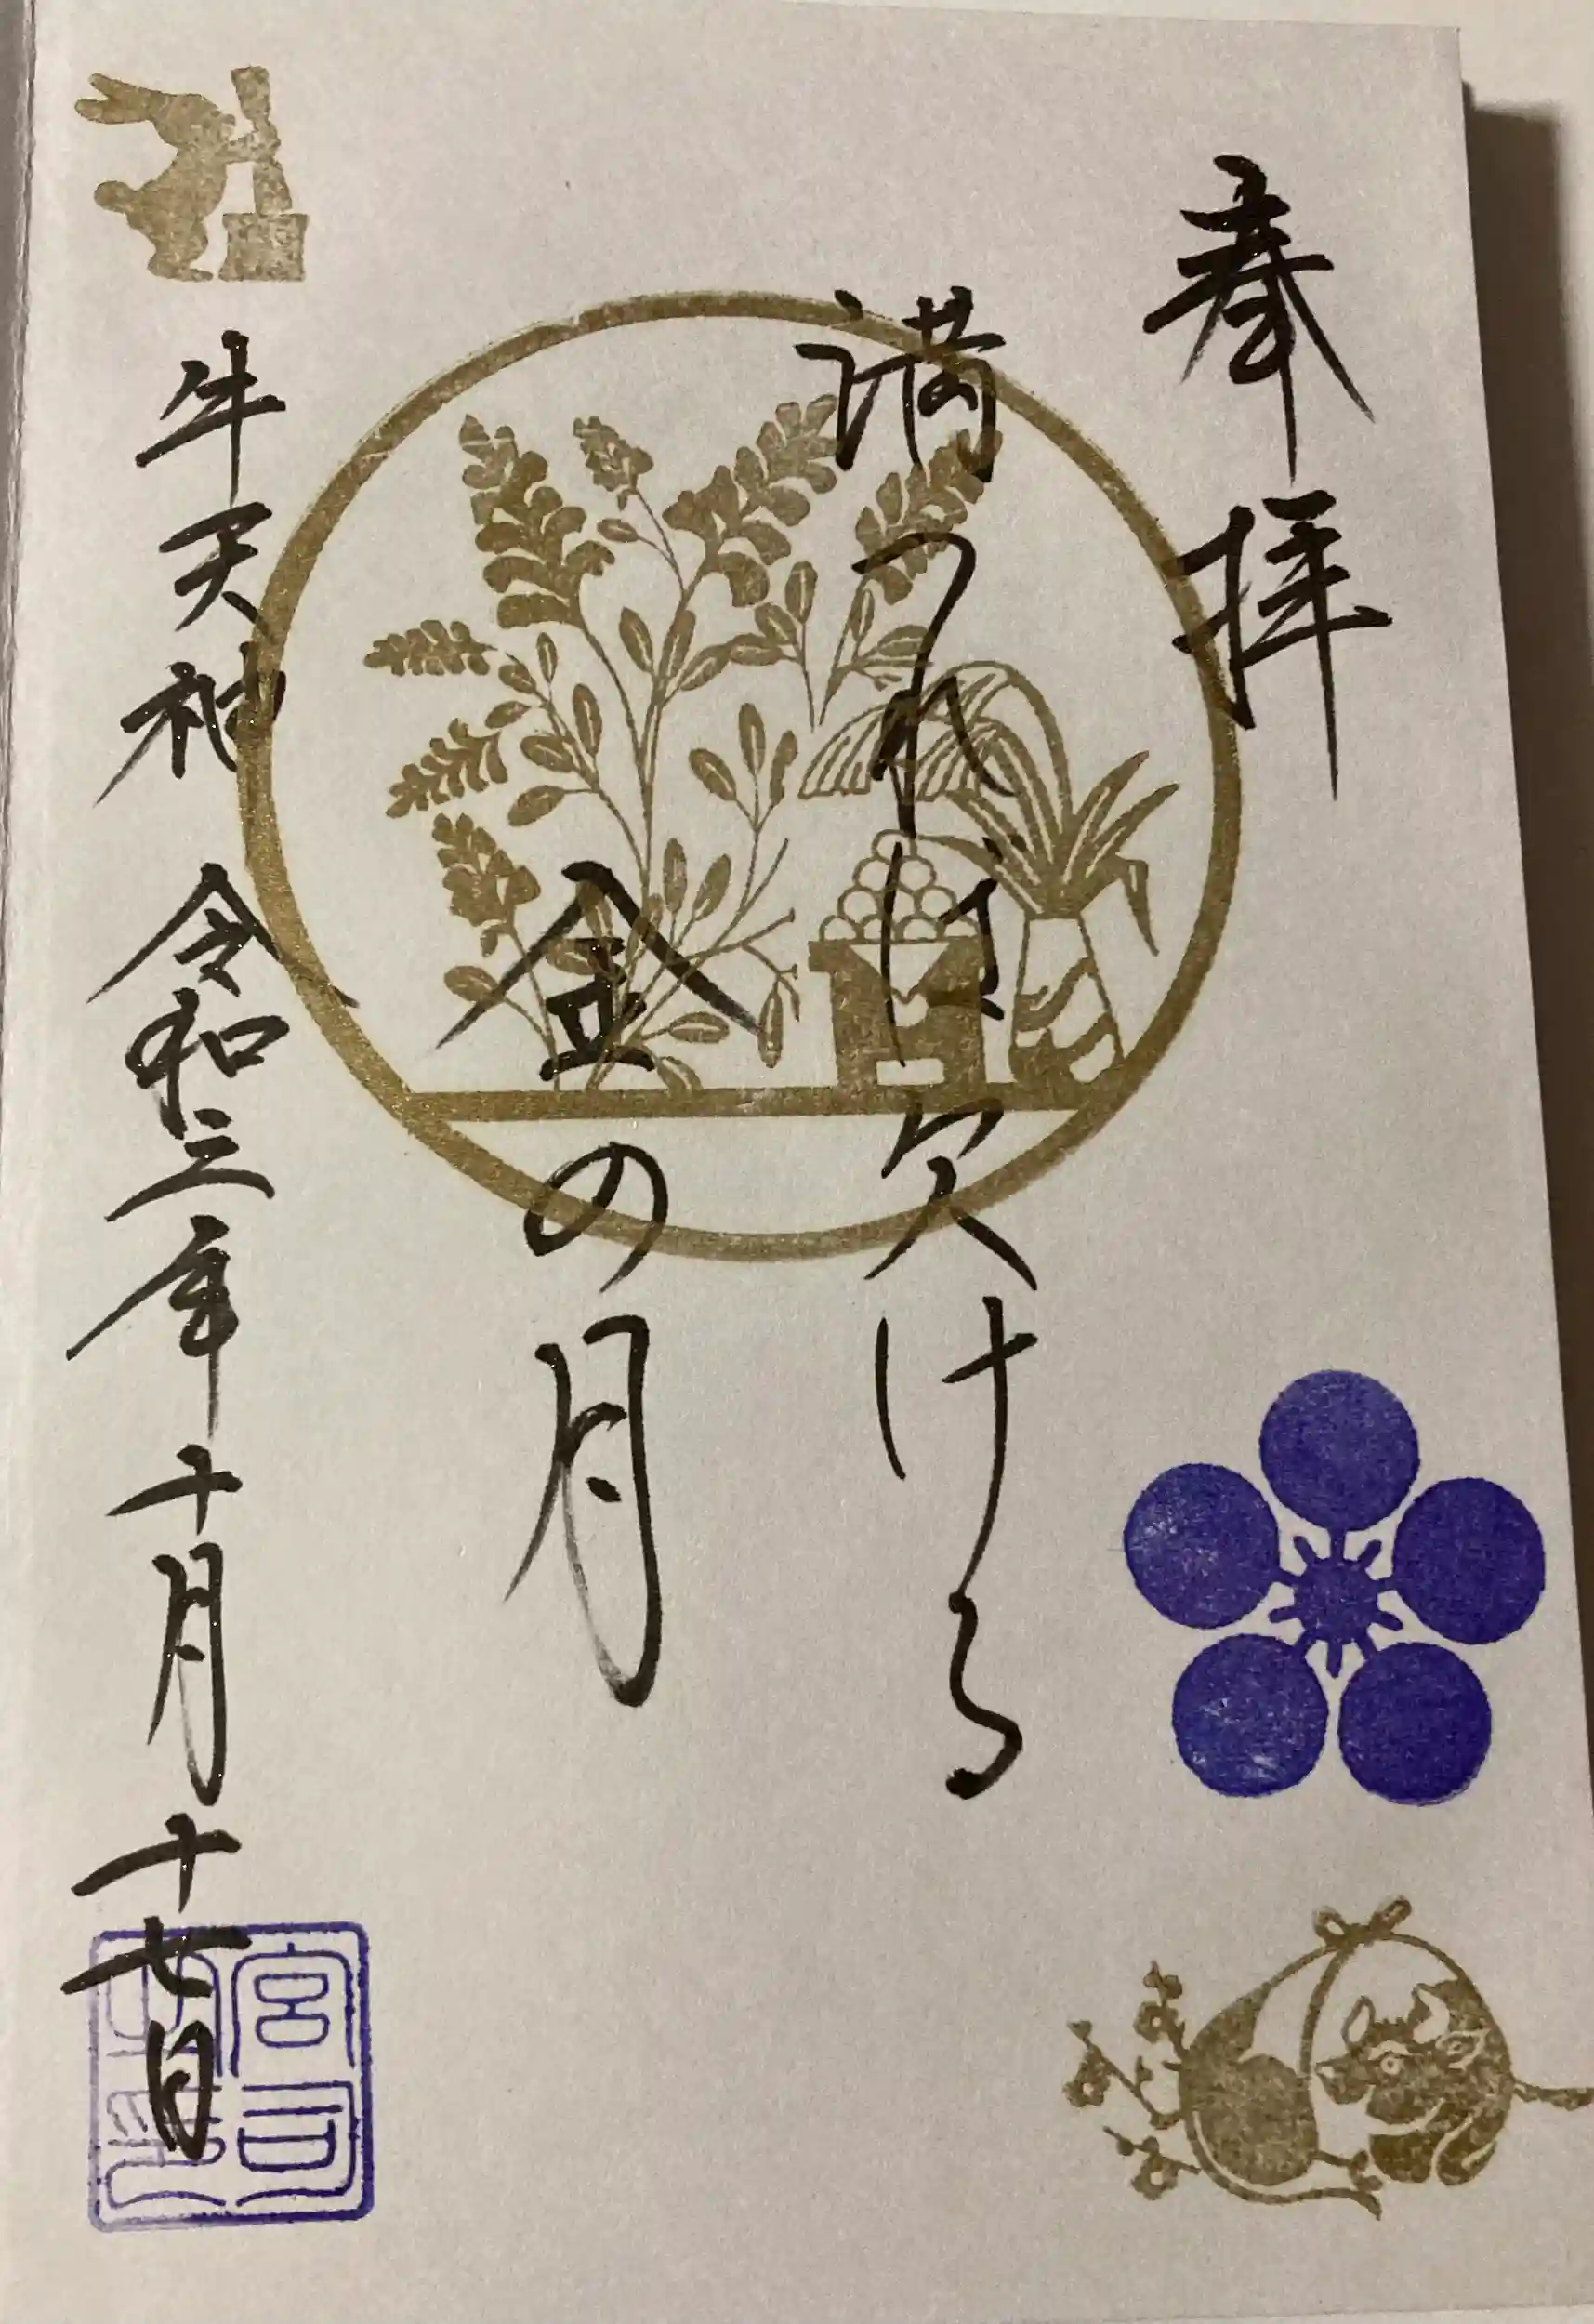 奉拝
満つれば欠ける
金の月
牛天神 令和三年十月十七日
宮司之印